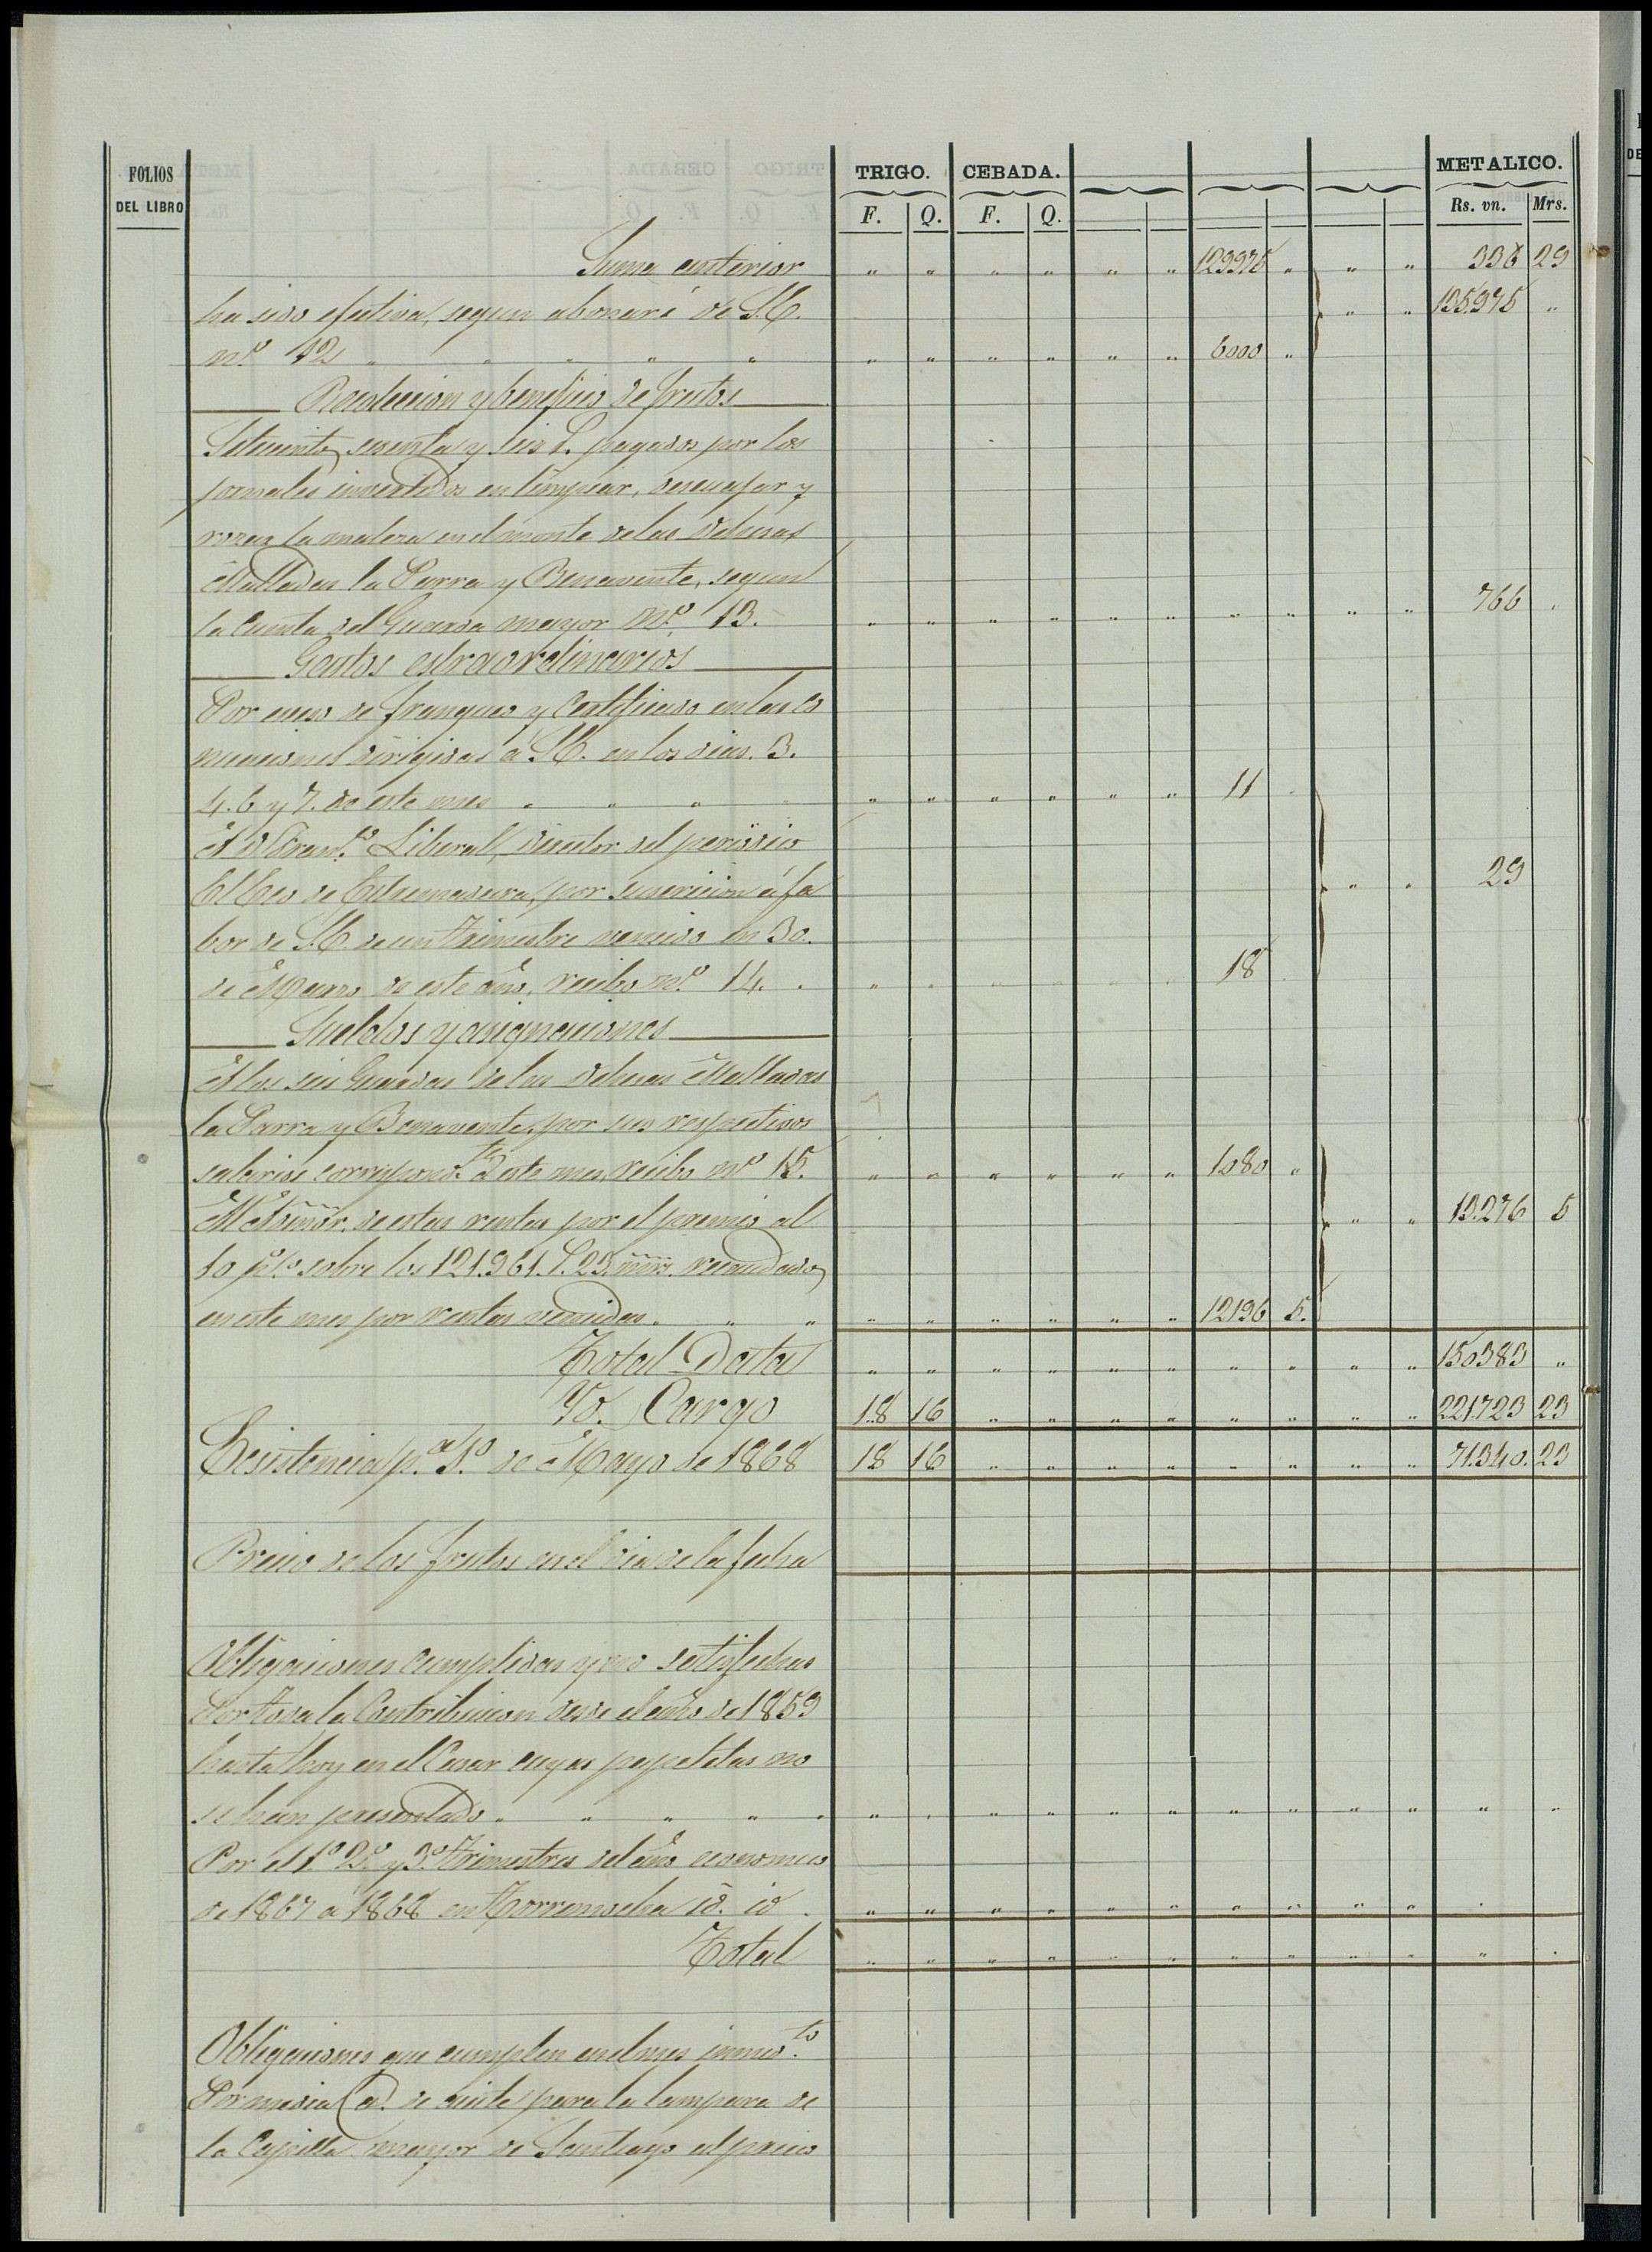 FOLIOS DEL LIBRO TRIGO. CEBADA. METALICO.
F. Q. F. Q. Rs. vn. Mrs.
Suma anterior " " " " " " 129975 " " " 336 29
ha sido efectiva, segun abonaré de S.E. " " 135975 "
nº 12 " " " " " " " " " " " 6000 "
Recoleccion y beneficio de frutos
Setecientos sesenta y seis r. pagados por los
jornales invertidos en limpiar, descuajar y
rozar la maleza en el monte de las dehesas
Malladas la Parra y Benavente, segun
la cuenta del Guarda mayor nº 13. " " " " " " " " " " 766 "
Gastos estraordinarios
Por esceso de franqueo y certificado en las co
municaciones dirigidas á S.E. en los dias 3.
4. 6 y 7. de este mes " " " " " " " " " 11 "
A D. Franco. Liberal, director del periódico
El Eco de Estremadura, por suscricion á fa " " 29
bor de S.E. de un trimestre vencido en 30.
de Marzo de este año, recibo nº 14. " " " " " " 18
Sueldos y asignaciones
A los seis Guardas de las dehesas Malladas
la Parra y Benavente, por sus respectivos
salarios correspondtes. á este mes, recibo nº 15. " " " " " " 1080 "
Al Admor. de estas rentas por el premio al " " 13.276 5
10 p% sobre los 121.961. r. 29. mrs. recaudados
en este mes por rentas vencidas. " " " " " " " " 12196 5.
Total Data " " " " " " " " " " 150383 "
Yd. Cargo 18 16 " " " " " " " " 221723 23
Existencia pa. 1º de Mayo de 1868 18 16 " " " " " " " " 71.340. 23
Precio de los frutos en el dia de la fecha
Obligaciones cumplidas y no satisfechas
Por toda la Contribucion desde el año de 1859
hasta hoy en el Casar cuyas papeletas no
se han presentado " " " " " " " " " " " " " " " "
Por el 1º 2º y 3º trimestres del año economico
de 1867 á 1868 en Torremocha id. id. " " " " " " " " " " "
Total " " " " " " " " " " " "
Obligaciones que cumplen en el mes inmedto.
Por media @ de aceite para la lampara de
la Capilla mayor de Santiago al precio